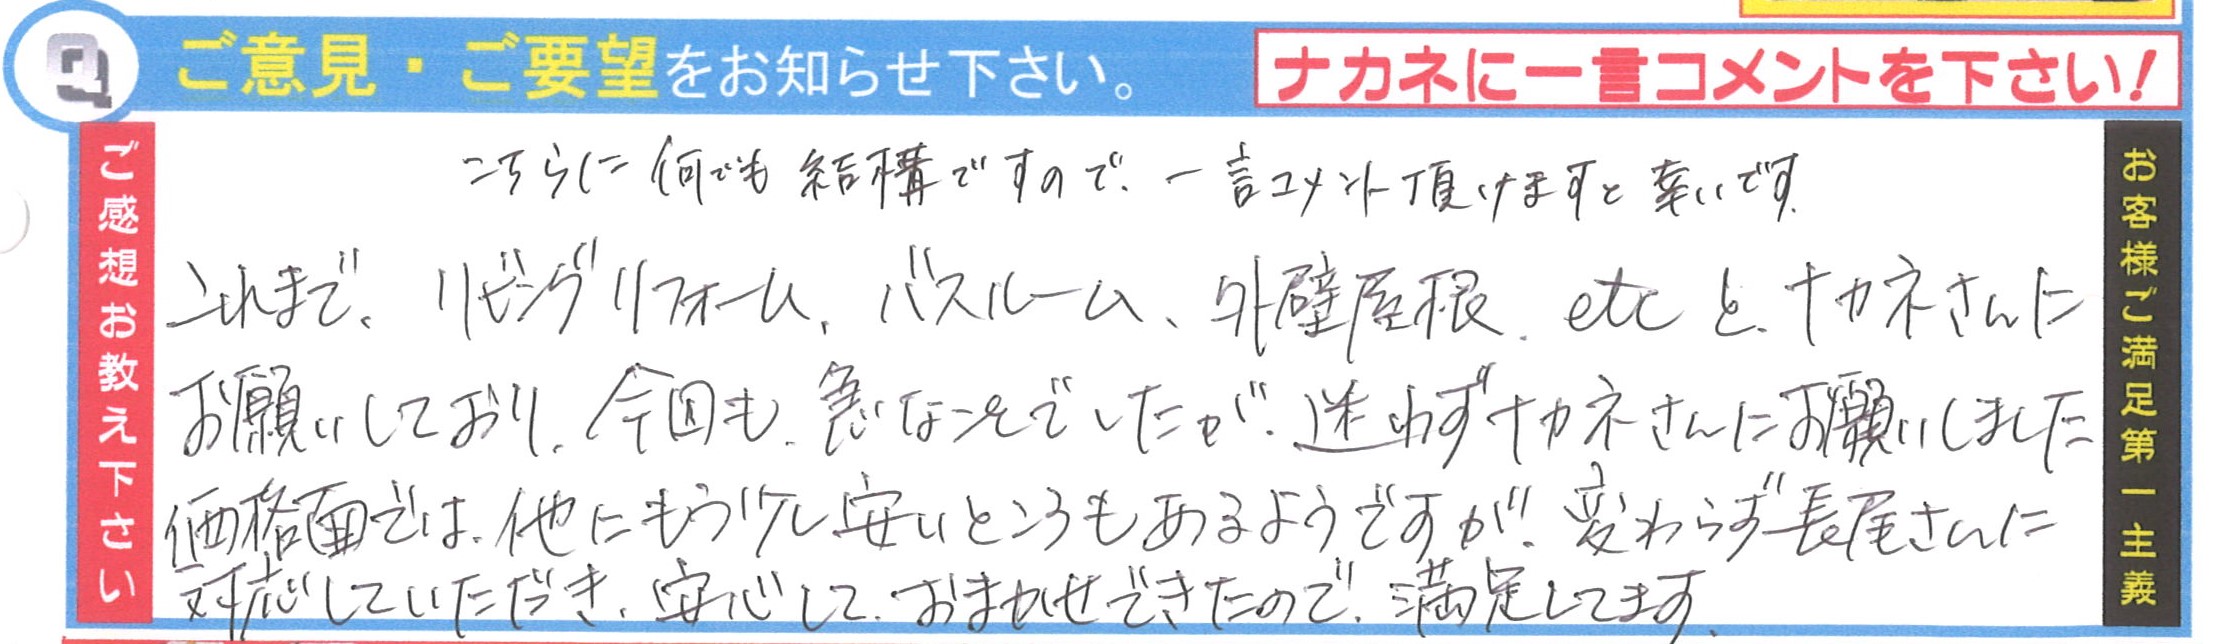 Q ご意見・ご要望をお知らせ下さい。
ナカネに一言コメントを下さい!
ご感想お教え下さい
こちらに何でも結構ですので、一言コメント頂けますと幸いです。
これまで、リビングリフォーム、バスルーム、外壁屋根、etcと、ナカネさんに
お願いしており、今回も、急なことでしたが、迷わずナカネさんにお願いしました
価格面では、他にもう少し安いところもあるようですが、変わらず長尾さんに
対応していただき、安心して、おまかせできたので、満足してます。
お客様ご満足第一主義